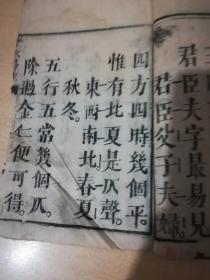 君臣夫字最易見
君臣父子夫婦
四方四時幾個平。
惟有北夏是仄聲。
東西南北春夏
秋冬。
五行五常幾個仄。
除過金仁便可得。